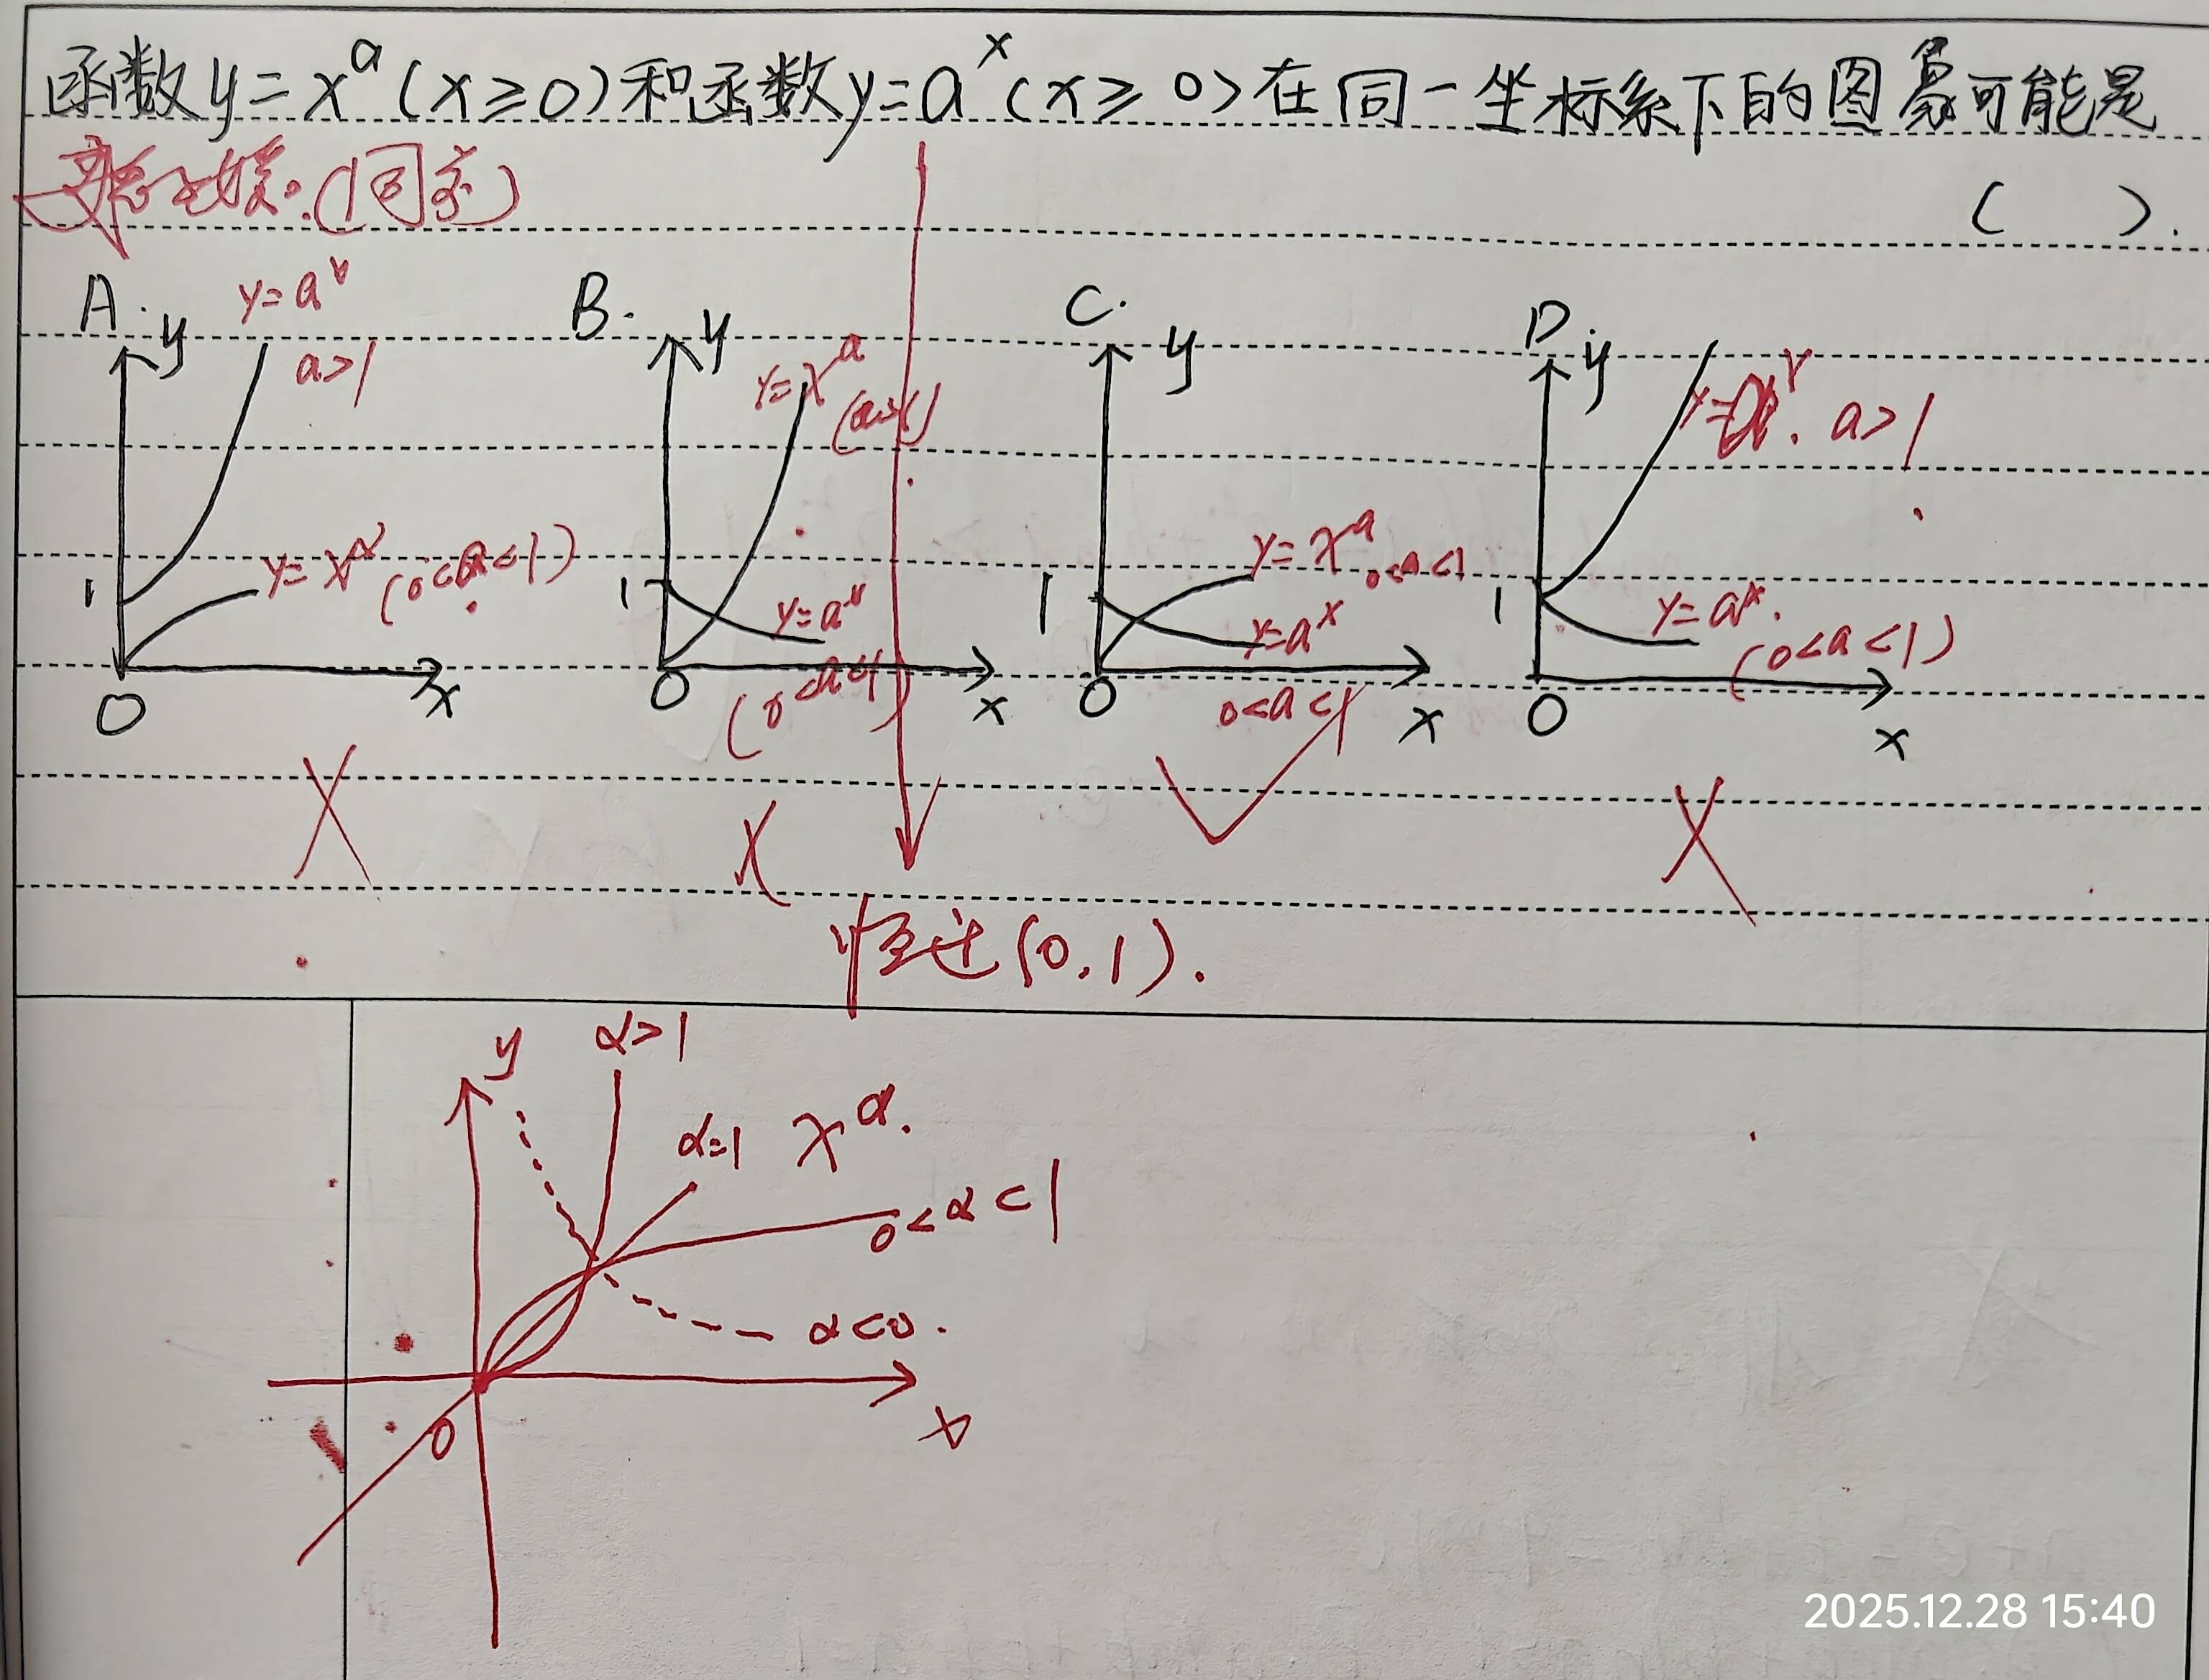 函数y=x^a(x≥0)和函数y=a^x(x≥0)在同一坐标系下的图象可能是
( ).
(同京)
A. B. C. D.
y=a^x
a>1
y
1
y=x^α (0<a<1)
O
x
y
y=x^a
(a>1)
1
y=a^x
(0<a<1)
O
x
y
y=x^a
0<a<1
1
y=a^x
0<a<1
O
x
y
a>1
1
y=a^x.
(0<a<1)
O
x
恒过(0,1).
y
α>1
α=1
x^α.
0<α<1
α<0.
0
x
2025.12.28 15:40